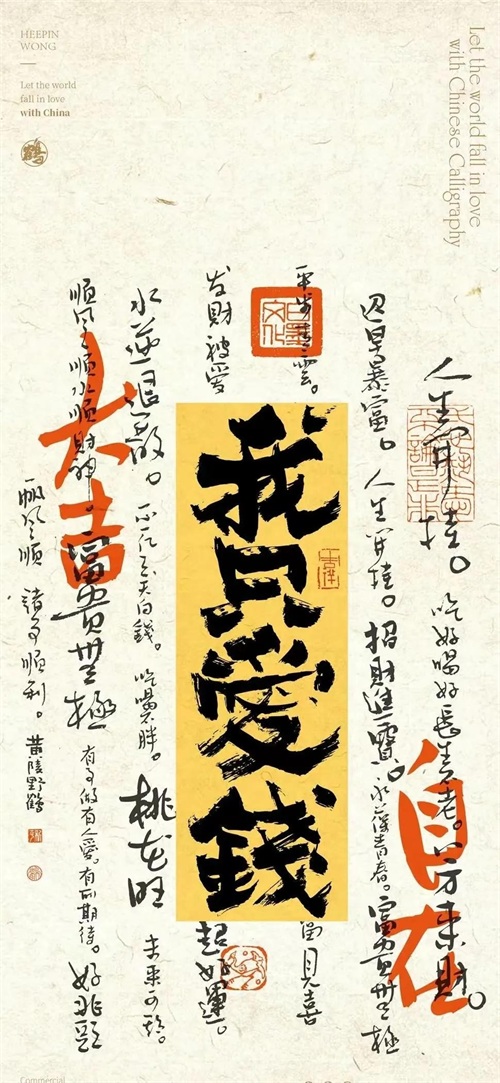 HEEPIN
WONG
Let the world
fall in love
with China
Let the world fall in love
with Chinese Calligraphy
人生開挂。吃好喝好長生不老。八方來財。
自在
迟早暴富。人生開挂。招財進寶。永葆青春。富貴無極
平步青雲。
當見喜
我只愛錢
发財被爱
超好運。
水逆退散。不仅三天白錢。吃喝不胖。桃花旺
未来可期。
大吉
順風順水順財神。富貴無極
有事做有人愛。有所期待。好兆頭
帆風順 諸事順利。黄陵野鶴
Commercial